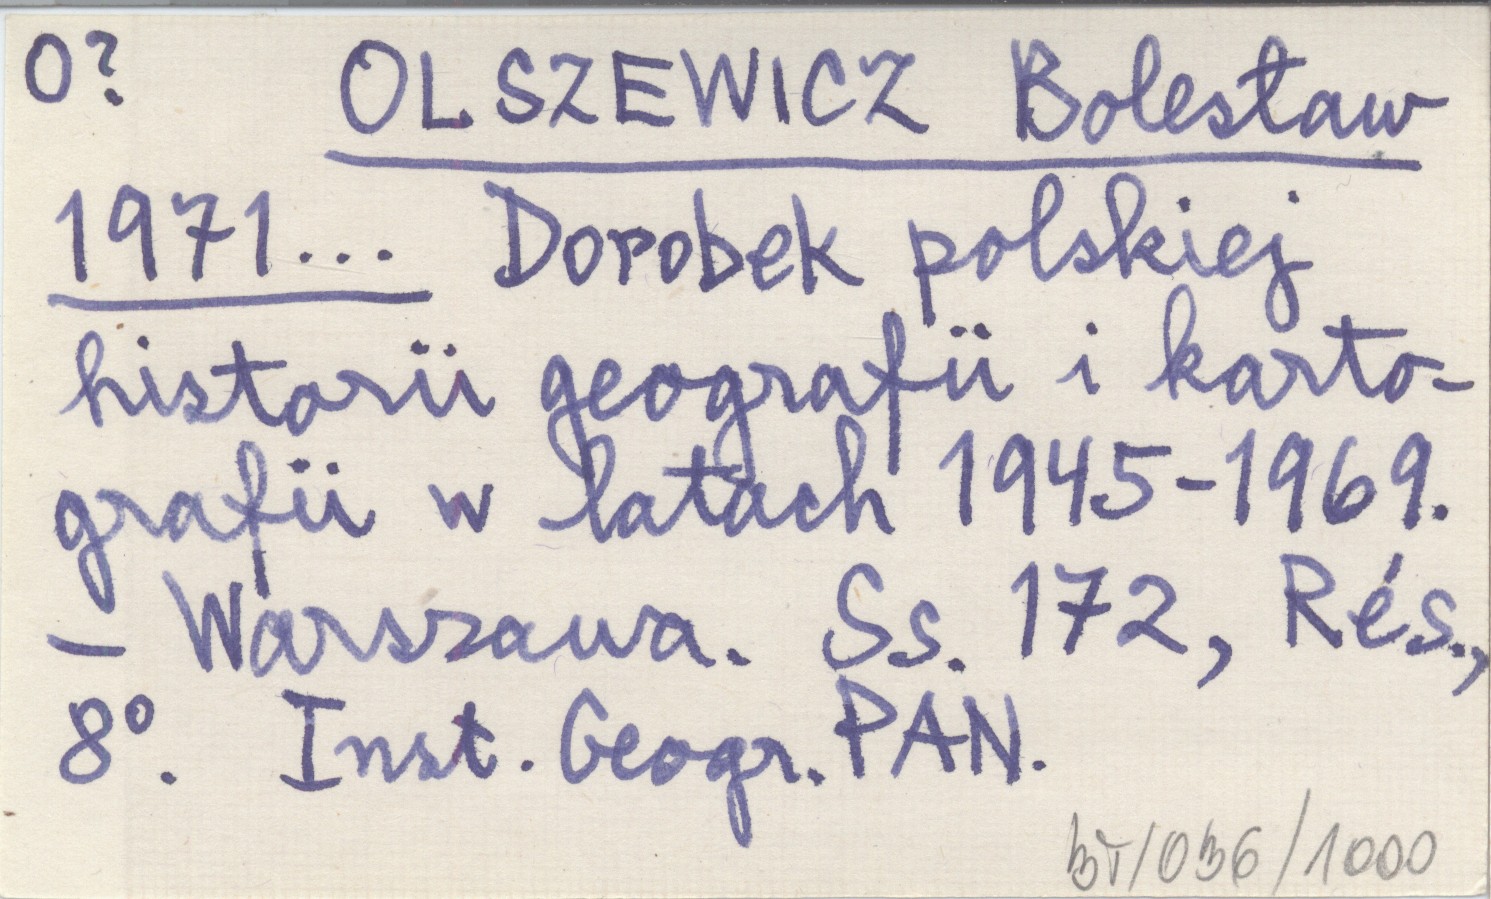 O? OLSZEWICZ Bolesław
1971... Dorobek polskiej
historii geografii i karto-
grafii w latach 1945-1969.
— Warszawa. Ss. 172, Rés.,
8°. Inst. Geogr. PAN.
/036/1000